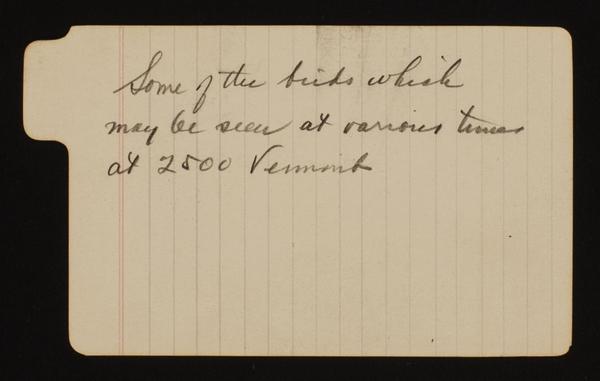 Some of the birds which
may be seen at various times
at 2500 Vermont